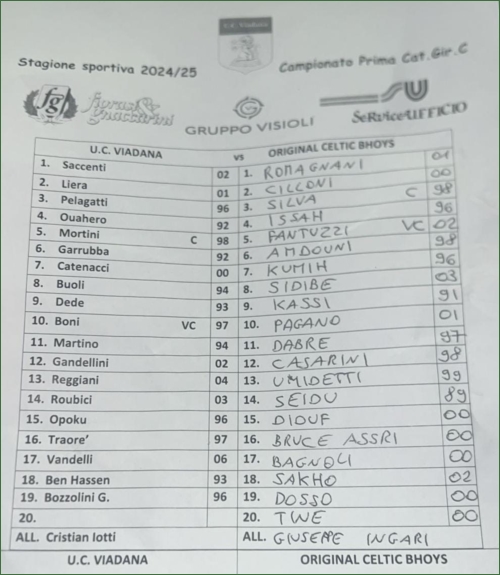 U.C. Viadana
Stagione sportiva 2024/25 Campionato Prima Cat.Gir.C
fg Fioruz& Gnaccarini GRUPPO VISIOLI SU SeRviceUFFICIO
U.C. VIADANA vs ORIGINAL CELTIC BHOYS
1. Saccenti 02 1. ROMAGNANI 01
2. Liera 01 2. CILLONI 00
3. Pelagatti 96 3. SILVA C 98
4. Ouahero 92 4. ISSAH 96
5. Mortini C 98 5. FANTUZZI VC 02
6. Garrubba 92 6. AMDOUNI 98
7. Catenacci 00 7. KUMIH 96
8. Buoli 94 8. SIDIBE 03
9. Dede 93 9. KASSI 91
10. Boni VC 97 10. PAGANO 01
11. Martino 94 11. DABRE 97
12. Gandellini 02 12. CASARINI 98
13. Reggiani 04 13. UMIDETTI 99
14. Roubici 03 14. SEIDU 89
15. Opoku 96 15. DIOUF 00
16. Traore’ 97 16. BRUCE ASSRI 00
17. Vandelli 06 17. BAGNOLI 00
18. Ben Hassen 93 18. SAKHO 02
19. Bozzolini G. 96 19. DOSSO 00
20. 20. TWE 00
ALL. Cristian Iotti ALL. GIUSEPPE INGARI
U.C. VIADANA ORIGINAL CELTIC BHOYS